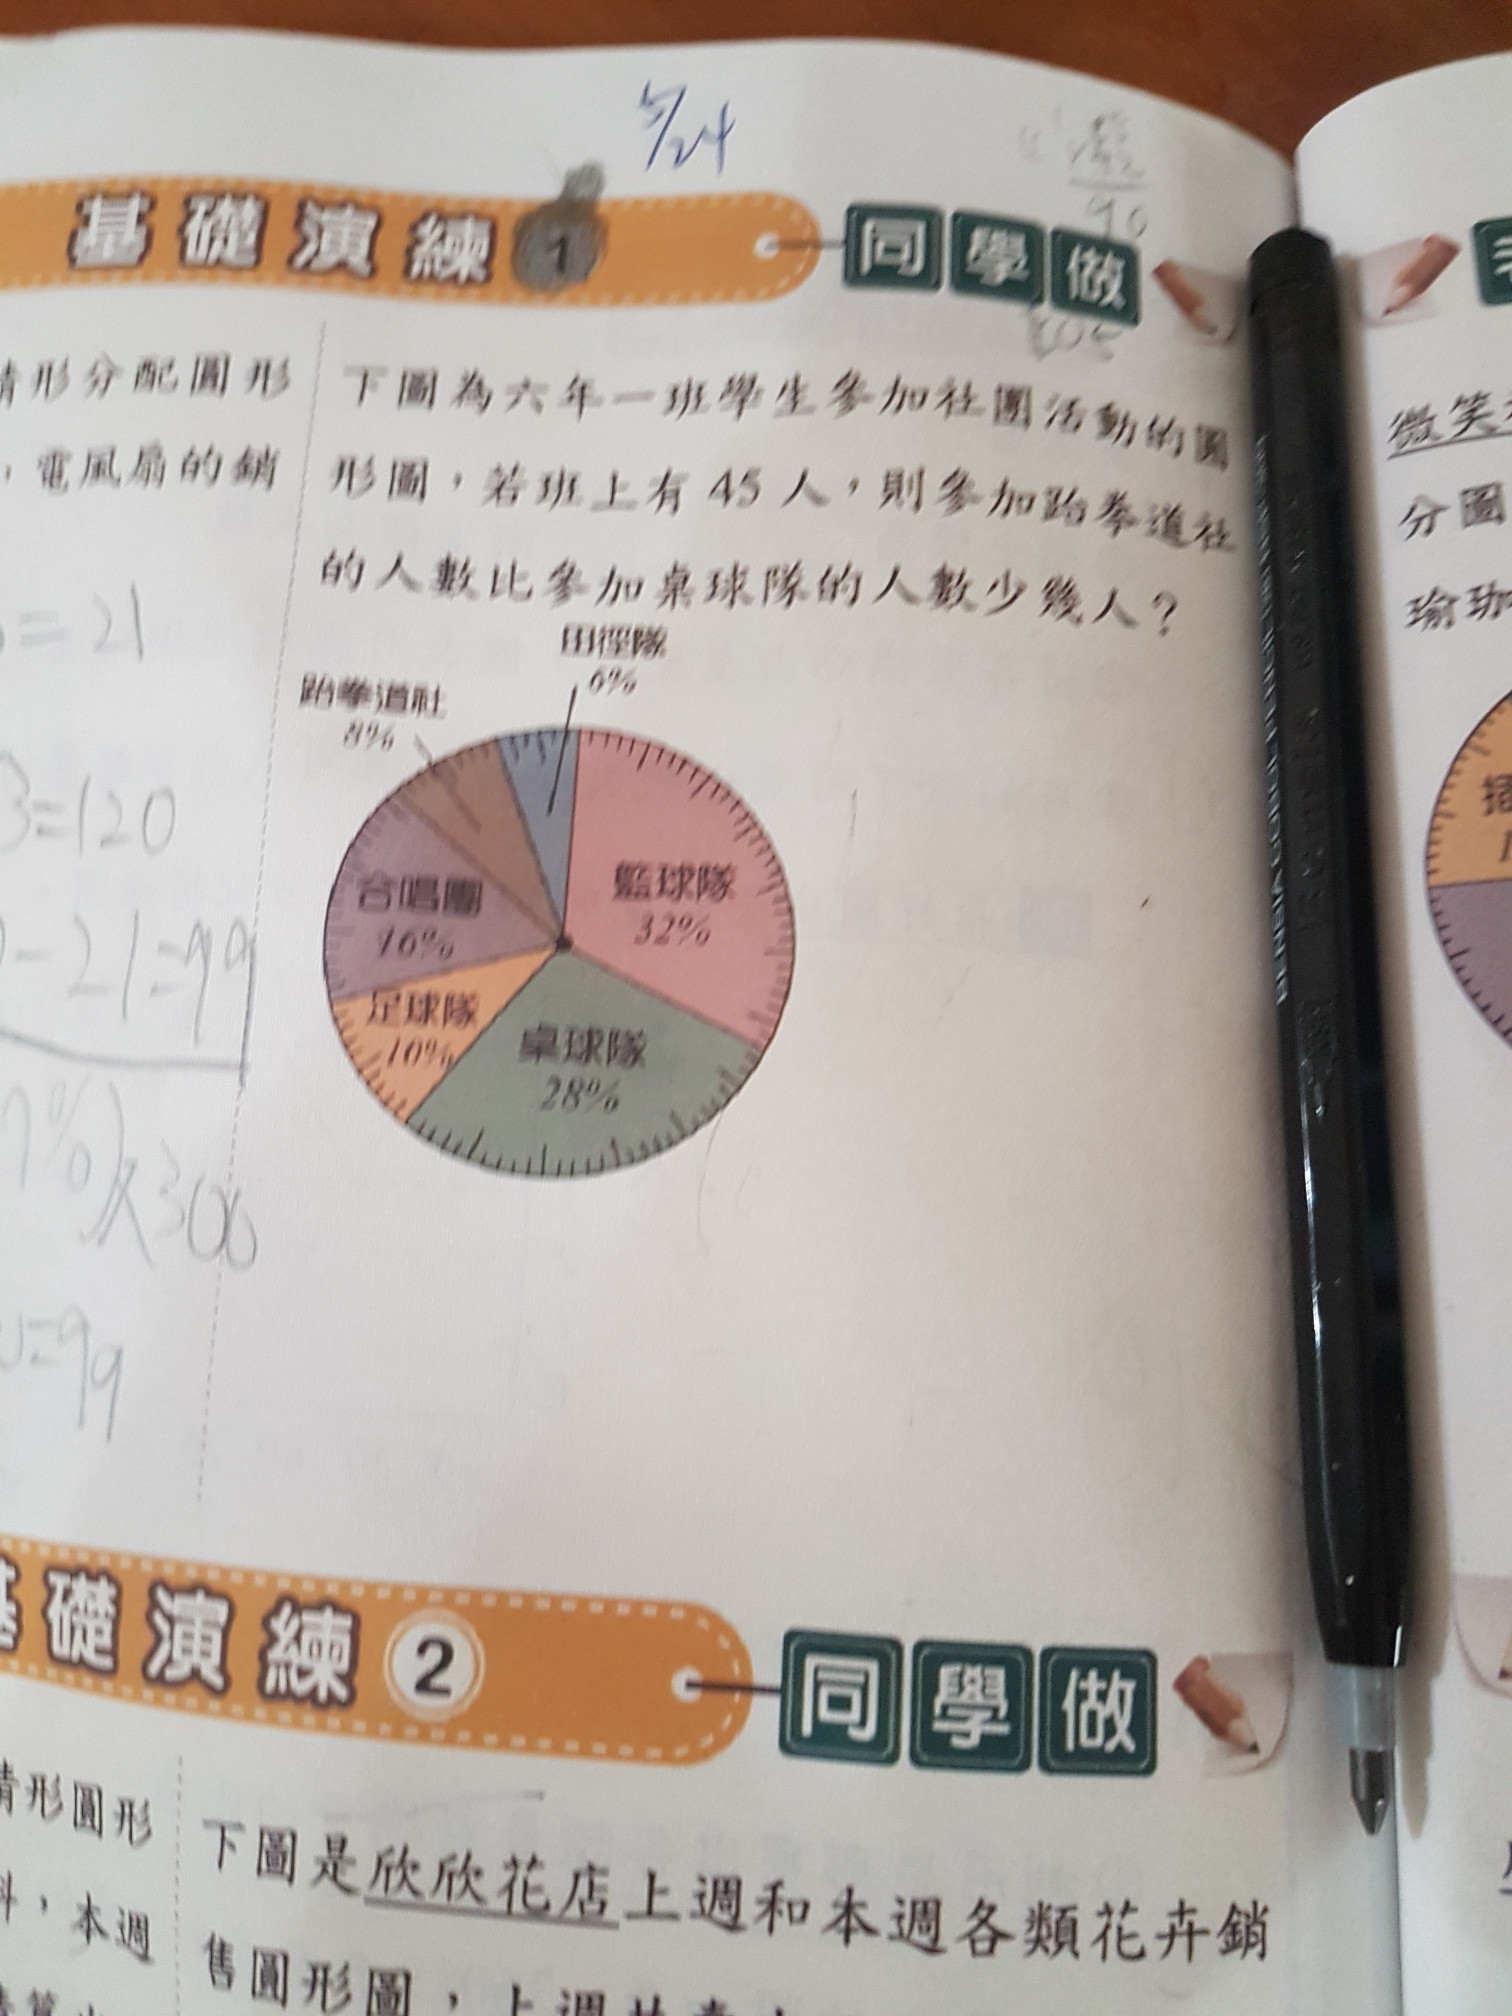 5/24
基礎演練 1 同學做
情形分配圓形
，電風扇的銷
= 21
3=120
-21=99
7%)×300
=99
下圖為六年一班學生參加社團活動的圓
形圖，若班上有 45 人，則參加跆拳道社
的人數比參加桌球隊的人數少幾人？
田徑隊
6%
跆拳道社
8%
籃球隊
32%
合唱團
16%
足球隊
10%
桌球隊
28%
基礎演練 2 同學做
情形圓形
料，本週
下圖是欣欣花店上週和本週各類花卉銷
售圓形圖，上週共賣
微笑
分圖
瑜珈